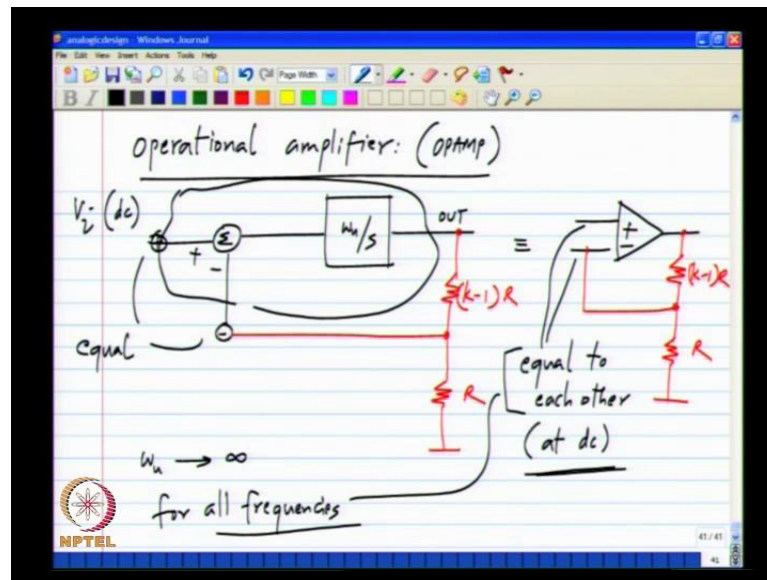 analogicdesign - Windows Journal
File Edit View Insert Actions Tools Help
Page Width
B I
operational amplifier: (OPAMP)
Vi (dc)
+ Σ ωu/s OUT
-
(k-1)R
R
equal
≡
+
-
(k-1)R
R
equal to
each other
(at dc)
ωu → ∞
for all frequencies
NPTEL
41 / 41
41